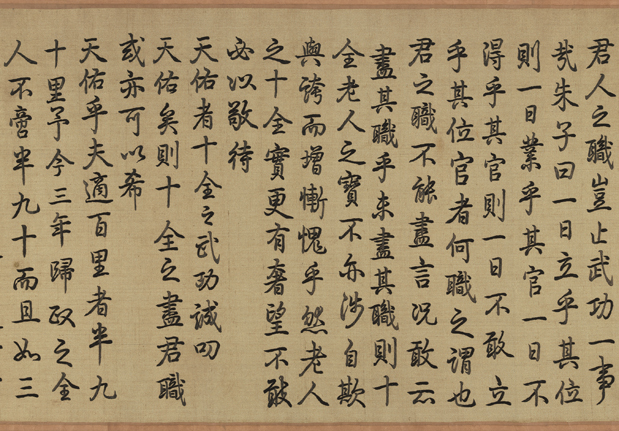 君人之職豈止武功一事
哉朱子曰一日立乎其位
則一日業乎其官一日不
得乎其官則一日不敢立
乎其位官者何職之謂也
君之職不能盡言況敢云
盡其職乎未盡其職則十
全老人之寶不亦涉自欺
與誇而增慚愧乎然老人
之十全實更有奢望不敢
必以敬待
天佑者十全之武功誠叨
天佑矣則十全之盡君職
或亦可以希
天佑乎夫適百里者半九
十里予今三年歸政之全
人不啻半九十而且如三